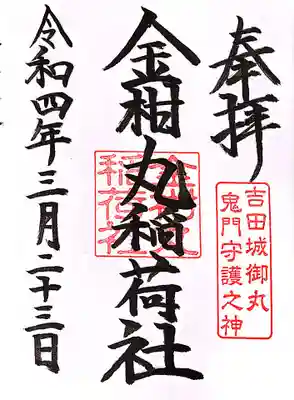 奉拝
吉田城御丸
鬼門守護之神
金柑丸稲荷社
令和四年三月二十三日